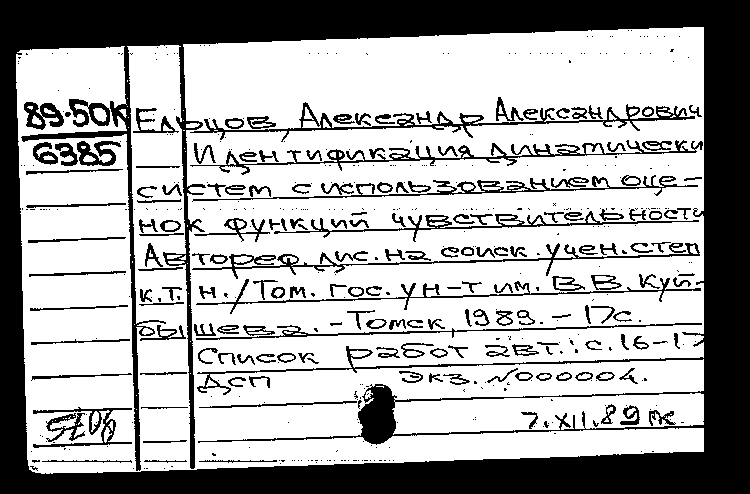 89-50К Ельцов, Александр Александрович
6385 Идентификация динамически
систем с использованием оце-
нок функций чувствительности
Автореф. дис. на соиск. учен. степ
к.т.н./Том. гос. ун-т им. В.В. Куй-
бышева. - Томск, 1989. - 17с.
Список работ авт.: с. 16-17
ДСП экз. №000004.
7.XII.89